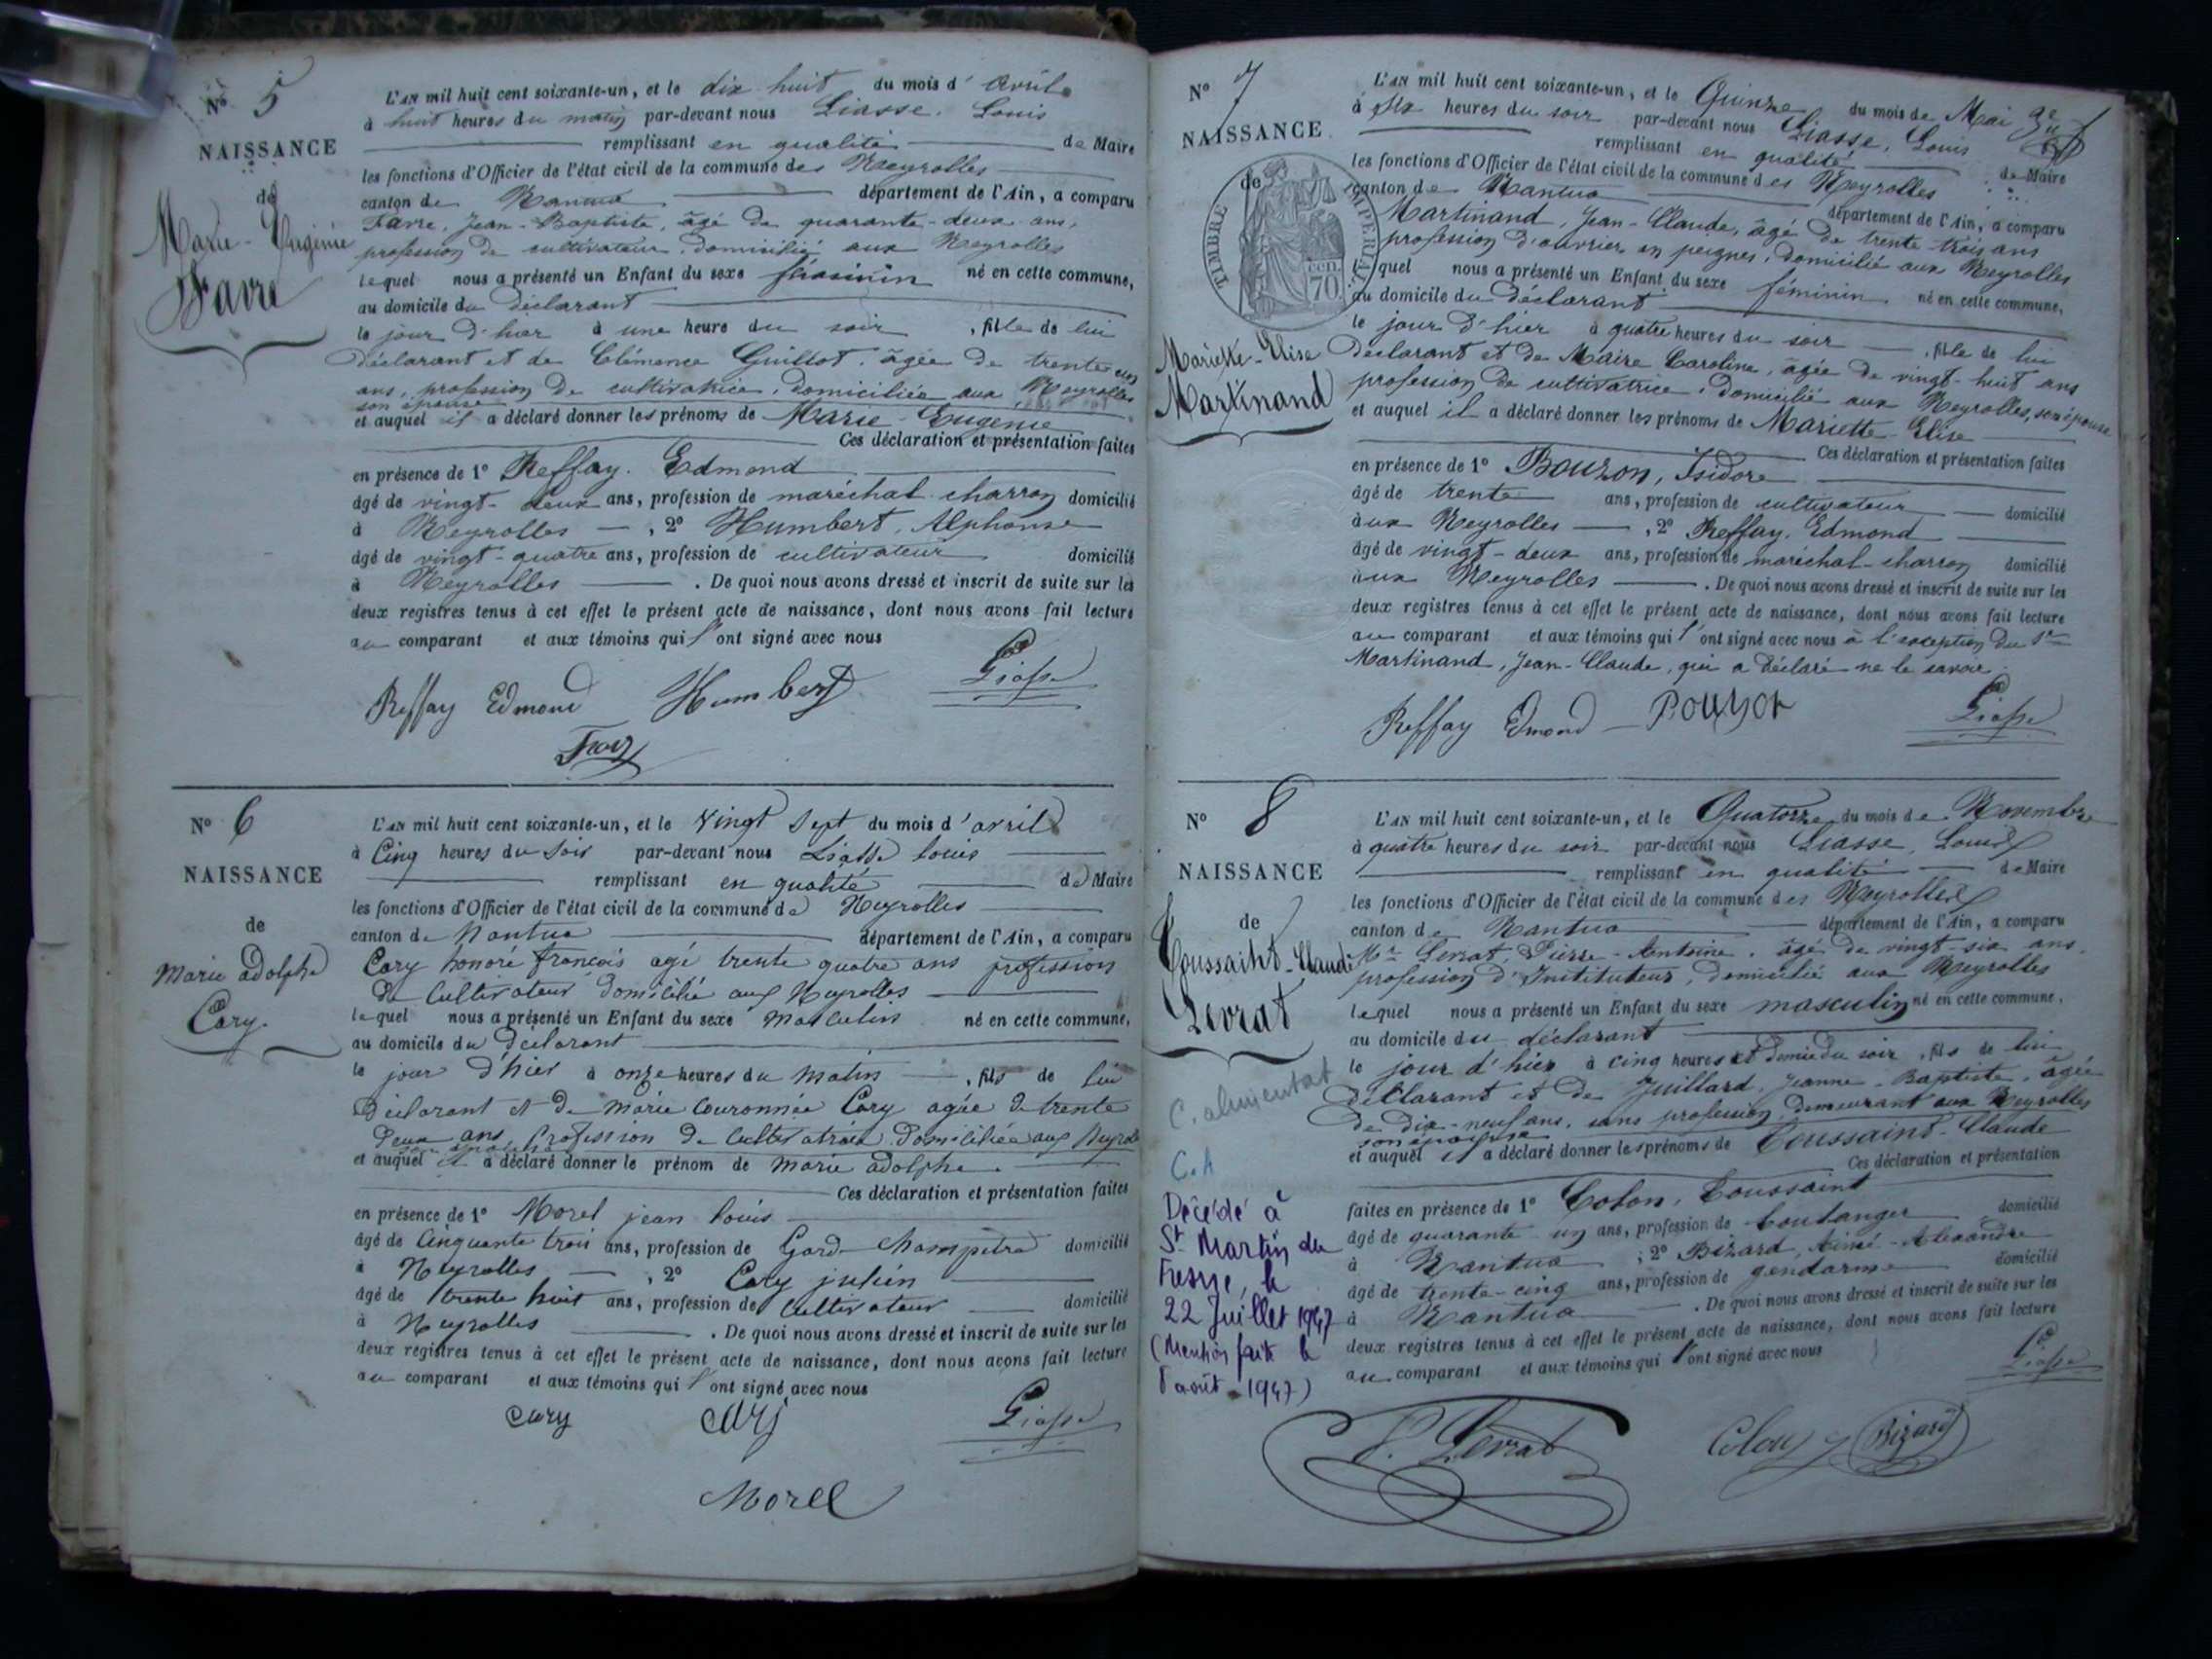 N° 5
NAISSANCE
de
Marie-Eugénie
Favre
L'AN mil huit cent soixante-un, et le dix huit du mois d'avril
à huit heures du matin par-devant nous Liasse, Louis
remplissant en qualité de Maire
les fonctions d'Officier de l'état civil de la commune des Neyrolles
canton de Nantua département de l'Ain, a comparu
Favre, Jean-Baptiste, âgé de quarante-deux ans,
profession de cultivateur, domicilié aux Neyrolles
lequel nous a présenté un Enfant du sexe féminin né en cette commune,
au domicile du déclarant
le jour d'hier à une heure du soir, fille de lui
déclarant et de Clémence Guillot, âgée de trente
ans, profession de cultivatrice, domiciliée aux Neyrolles
son épouse
et auquel il a déclaré donner les prénoms de Marie Eugénie
Ces déclaration et présentation faites
en présence de 1° Reffay, Edmond
âgé de vingt-deux ans, profession de maréchal charron domicilié
à Neyrolles, 2° Humbert, Alphonse
âgé de vingt-quatre ans, profession de cultivateur domicilié
à Neyrolles. De quoi nous avons dressé et inscrit de suite sur les
deux registres tenus à cet effet le présent acte de naissance, dont nous avons fait lecture
au comparant et aux témoins qui l'ont signé avec nous
Reffay Edmond Humbert Liasse
N° 6
NAISSANCE
de
Marie adolphe
Cary.
L'AN mil huit cent soixante-un, et le vingt sept du mois d'avril
à Cinq heures du soir par-devant nous Liasse louis
remplissant en qualité de Maire
les fonctions d'Officier de l'état civil de la commune de Neyrolles
canton de Nantua département de l'Ain, a comparu
Cary honoré françois agé trente quatre ans profession
de Cultivateur domicilié aux Neyrolles
lequel nous a présenté un Enfant du sexe Masculin né en cette commune,
au domicile du déclarant
le jour d'hier à onze heures du matin, fils de lui
déclarant et de marie Couronnée Cary agée de trente
deux ans profession de Cultivatrice domiciliée aux Neyrolles
son épouse
et auquel il a déclaré donner le prénom de marie adolphe.
Ces déclaration et présentation faites
en présence de 1° Morel jean louis
âgé de Cinquante trois ans, profession de Gard-Champêtre domicilié
à Neyrolles, 2° Cary julien
âgé de trente huit ans, profession de Cultivateur domicilié
à Neyrolles. De quoi nous avons dressé et inscrit de suite sur les
deux registres tenus à cet effet le présent acte de naissance, dont nous avons fait lecture
au comparant et aux témoins qui l'ont signé avec nous
cary cary Liasse
Morel
N° 7
NAISSANCE
de
TIMBRE IMPERIAL
70 cen.
Mariette-Elise
Martinand
L'AN mil huit cent soixante-un, et le Quinze du mois de Mai
à six heures du soir par-devant nous Liasse, Louis
remplissant en qualité de Maire
les fonctions d'Officier de l'état civil de la commune des Neyrolles
canton de Nantua département de l'Ain, a comparu
Martinand, Jean-Claude, âgé de trente-trois ans
profession d'ouvrier en peignes, domicilié aux Neyrolles
lequel nous a présenté un Enfant du sexe féminin, né en cette commune,
au domicile du déclarant
le jour d'hier à quatre heures du soir, fille de lui
déclarant et de Maire Caroline, âgée de vingt-huit ans
profession de cultivatrice, domicilié aux Neyrolles, son épouse
et auquel il a déclaré donner les prénoms de Mariette-Elise
Ces déclaration et présentation faites
en présence de 1° Bouzon, Isidore
âgé de trente ans, profession de cultivateur domicilié
aux Neyrolles, 2° Reffay, Edmond
âgé de vingt-deux ans, profession de maréchal-charron domicilié
aux Neyrolles. De quoi nous avons dressé et inscrit de suite sur les
deux registres tenus à cet effet le présent acte de naissance, dont nous avons fait lecture
au comparant et aux témoins qui l'ont signé avec nous à l'exception du Sr
Martinand, Jean-Claude, qui a déclaré ne le savoir.
Reffay Edmond Bouzon Liasse
N° 8
NAISSANCE
de
Toussaint-Claude
Levrat
L'AN mil huit cent soixante-un, et le Quatorze du mois de Novembre
à quatre heures du soir par-devant nous Liasse, Louis
remplissant en qualité de Maire
les fonctions d'Officier de l'état civil de la commune des Neyrolles
canton de Nantua département de l'Ain, a comparu
Mr Levrat, Pierre-Antoine, âgé de vingt-six ans,
profession d'Instituteur, domicilié aux Neyrolles
lequel nous a présenté un Enfant du sexe masculin né en cette commune,
au domicile du déclarant
le jour d'hier à cinq heures et demie du soir, fils de lui
déclarant et de Juillard, Jeanne-Baptiste, âgée
de dix-neuf ans, sans profession, demeurant aux Neyrolles
son épouse
et auquel il a déclaré donner les prénoms de Toussaint-Claude
Ces déclaration et présentation
faites en présence de 1° Colon, Toussaint
âgé de quarante un ans, profession de boulanger domicilié
à Nantua; 2° Bizard, Aimé-Alexandre
âgé de trente-cinq ans, profession de gendarme domicilié
à Nantua. De quoi nous avons dressé et inscrit de suite sur les
deux registres tenus à cet effet le présent acte de naissance, dont nous avons fait lecture
au comparant et aux témoins qui l'ont signé avec nous
Liasse
Levrat Colon Bizard
C. alimentat
C.A
Décédé à
St Martin du
Fresne, le
22 Juillet 1947
(Mention faite le
août 1947)